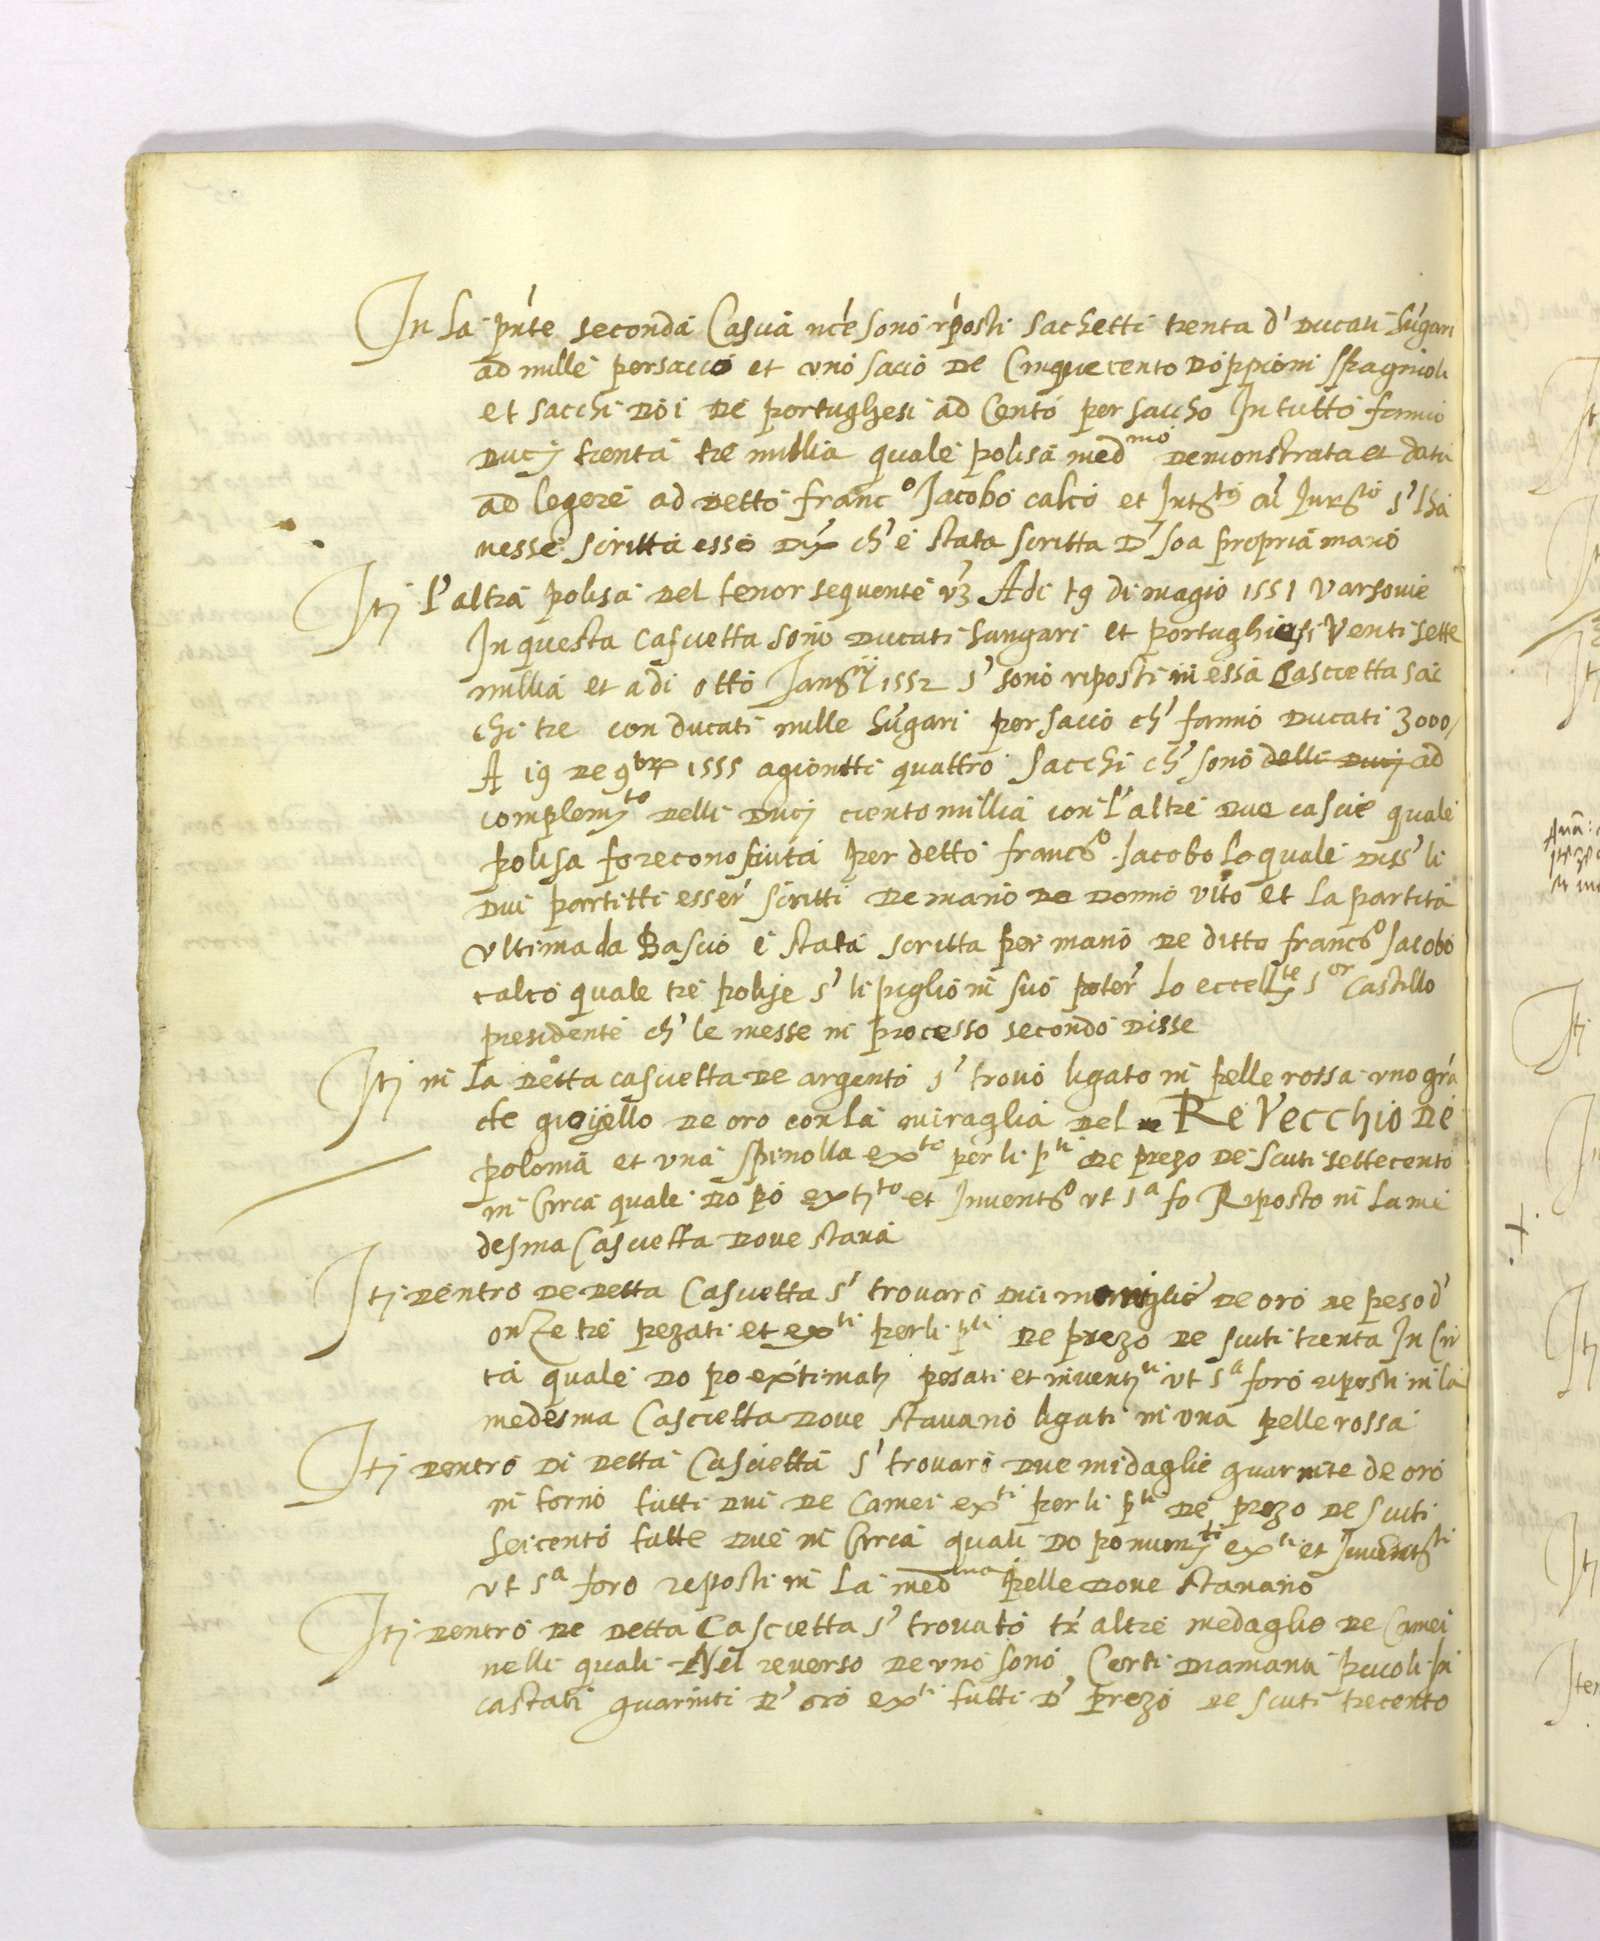 In la pñte seconda Cascia nce sono riposti sachetti trenta d' Ducati Ũgari
ad mille per sacco et uno sacco de Cinquecento doppioni spagnioli
et sacchi doi de portughesi ad cento per saccho In tutto fanno
Ducj trenta tre millia quale polisa med.mo demonstrata et data
ad legere ad detto franc.o Jacobo calco et s' lha
messe scritta esso Dix ch' è stata scritta d' soa propria mano
Itj l'altra polisa del tenor sequente vz Adi 19 di magio 1551 Varsovie
In questa cascietta sono ducati hungari et portughiesi venti sette
millia et adi otto 1552 s' sono riposti in essa Cascietta sac
chi tre con ducati mille hũgari per sacco ch' fanno ducati 3000
A 19 de 9bre 1555 agiontti quattro sacchi ch' sono delli Ducj ad
complem.to delli Ducj ciento millia con l'altre due cascie quale
polisa fo reconosciuta per detto franc.o Jacobo lo quale diss' li
dui partitti esser' scritti de mano de donno vito et la partita
ultima da Bascio è stata scritta per mano de ditto franc.o Jacobo
calco quale tre polise s' li pigliò in suo poter' lo eccell.te s.or Castillo
presidente ch' le messe in processo secondo disse
Itj in la detta cascietta de argento s' trovò ligato in pelle rossa uno grã
de gioyello de oro con la miraglia del Re Vecchio de
polonia et una spinolla ex.ti per li p.ti de prezo de scuti settecento
in Circa quale do po ext.to et Invent.o ut s.a fo Riposto in la me
desma Cascietta dove stava
Itj dentro de detta Cascietta s' trovaro dui maniglie de oro de peso d'
onze tre pezati et ex.ti per li p.ti de prezo de scuti trenta In Cir
ca quale do po extimati pesati et invent.ti ut s.a foro riposti in la
medesma Cascietta dove stavano ligati in una pelle rossa
Itj dentro di detta Cascietta s' trovaro due midaglie guarnite de oro
in torno tutti dui de Camei ex.ti per li p.ti de prezo de scuti
seicento tutte due in Circa quali do po num.ti ex.ti et Invent.ti
ut s.a foro reposti in la med.ma pelle dove stavano
Itj dentro de detta Cascietta s' trovato tre altre medaglie de Camei
nelli quali Nel reverso de uno sono Certi diamanti piccoli in
castati guarniti d' oro ex.ti tutti d' prezo de scuti trecento